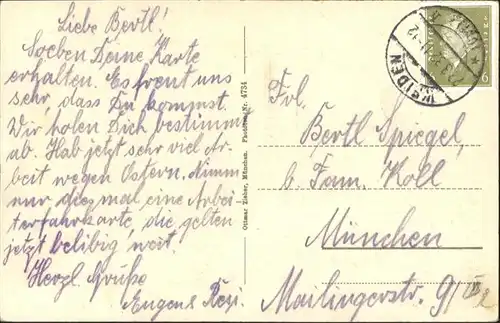 Liebe Bertl!
Soeben Deine Karte
erhalten. Es freut uns
sehr, dass Du kommst.
Wir holen Dich bestimm
ab. Hab jetzt sehr viel Ar-
beit wegen Ostern. Nimm
nur diesmal eine Arbei-
terfahrkarte, die gelten
jetzt belibig, weit.
Herzl. Grüße
Eugen u. Resi.
Ottmar Zieher, München. Nr. 4734
WEIDEN
6
Frl.
Bertl Spiegel,
b. Fam. Koll
München
Mailingerstr. 9/